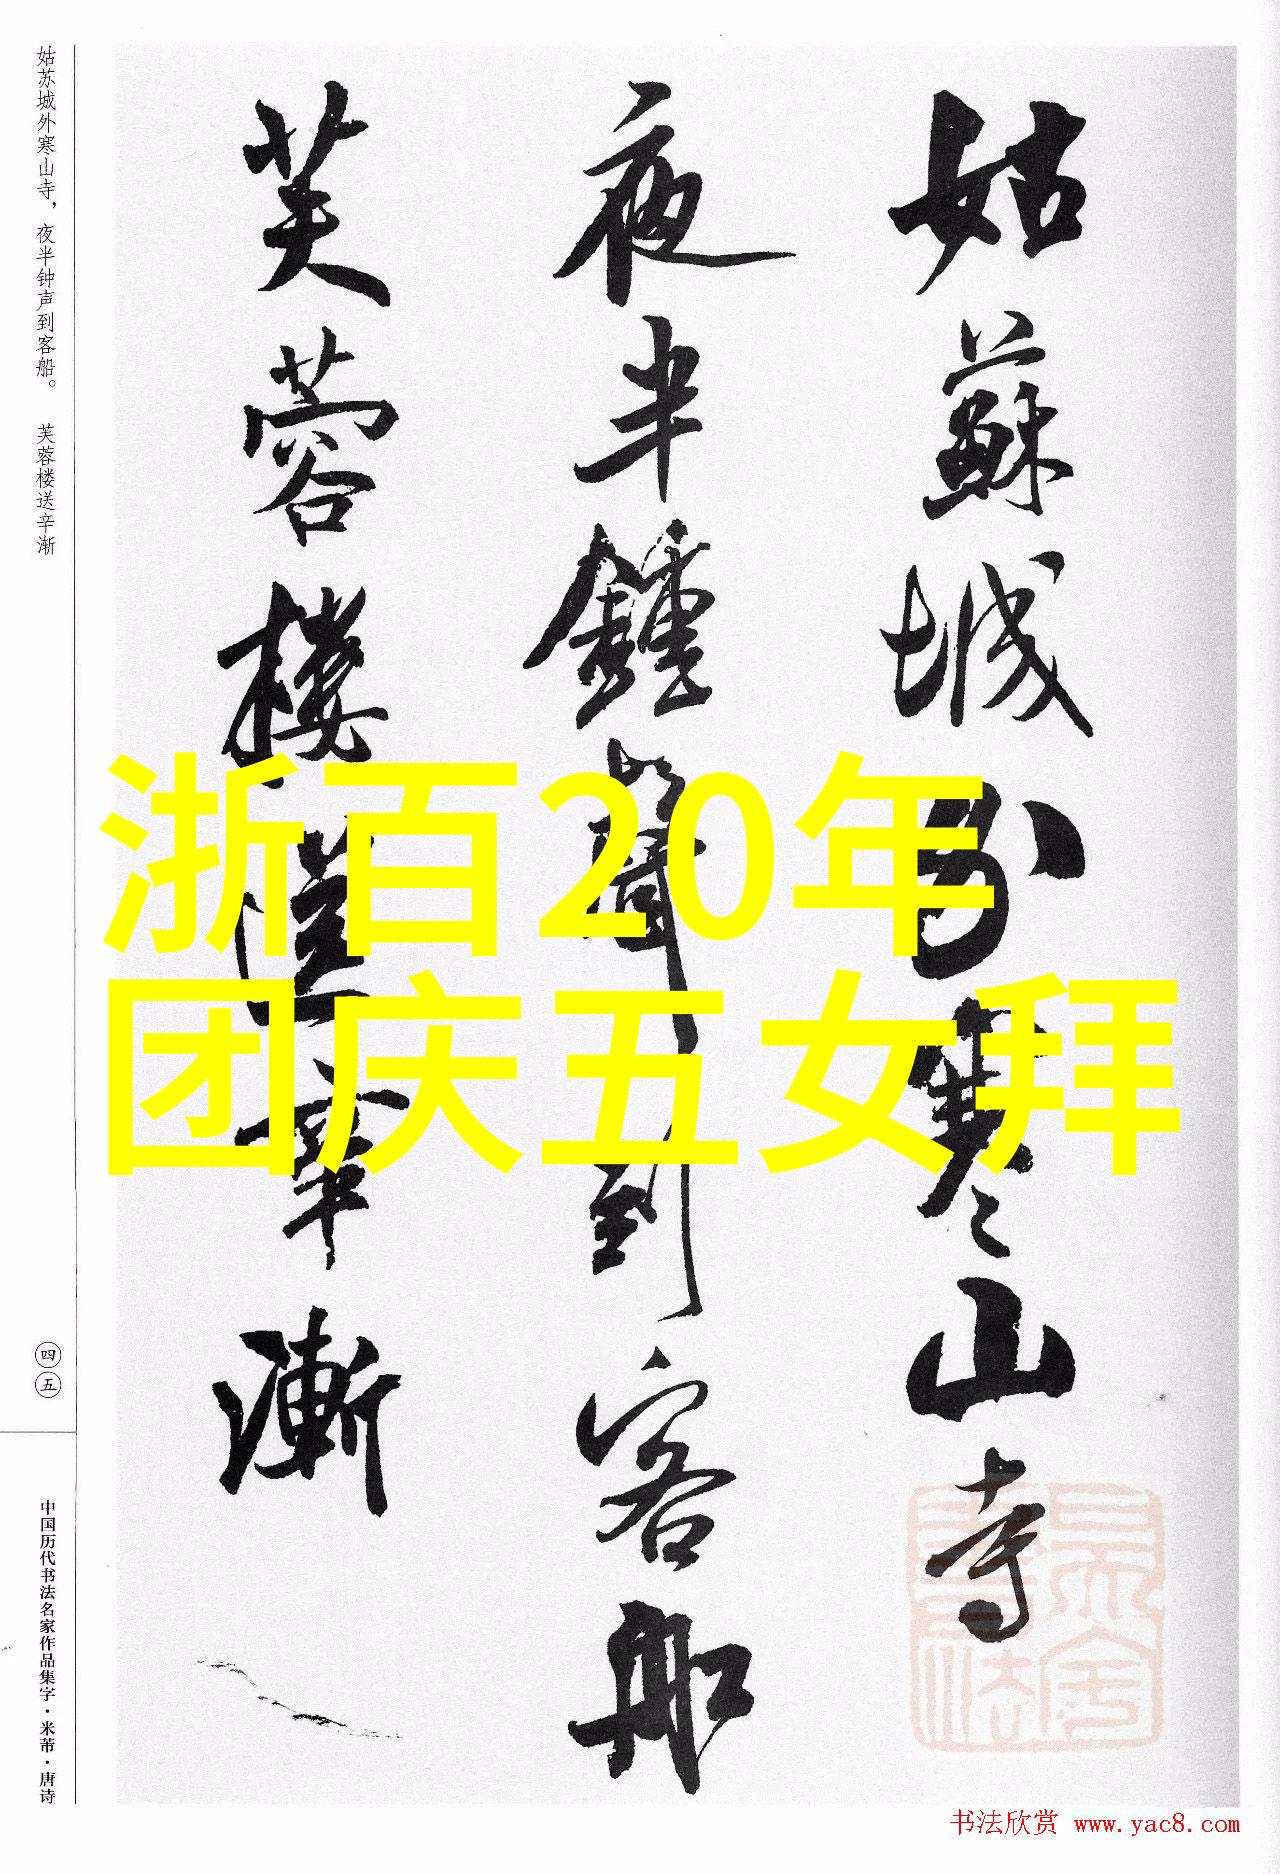 姑蘇城外寒山寺
夜半鍾聲到客船
芙蓉樓送辛漸
姑苏城外寒山寺，夜半钟声到客船。 芙蓉楼送辛渐
四五
中国历代书法名家作品集字·米芾·唐诗
浙百20年
团庆五女拜
书法欣赏 www.yac8.com